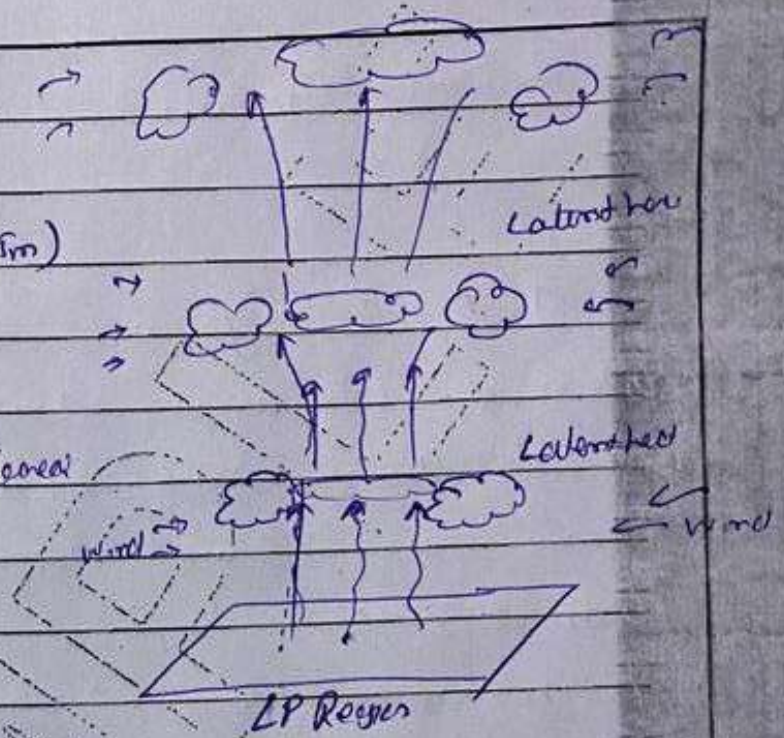 Latent hea
Latent heat
Wind
Wind
LP Region